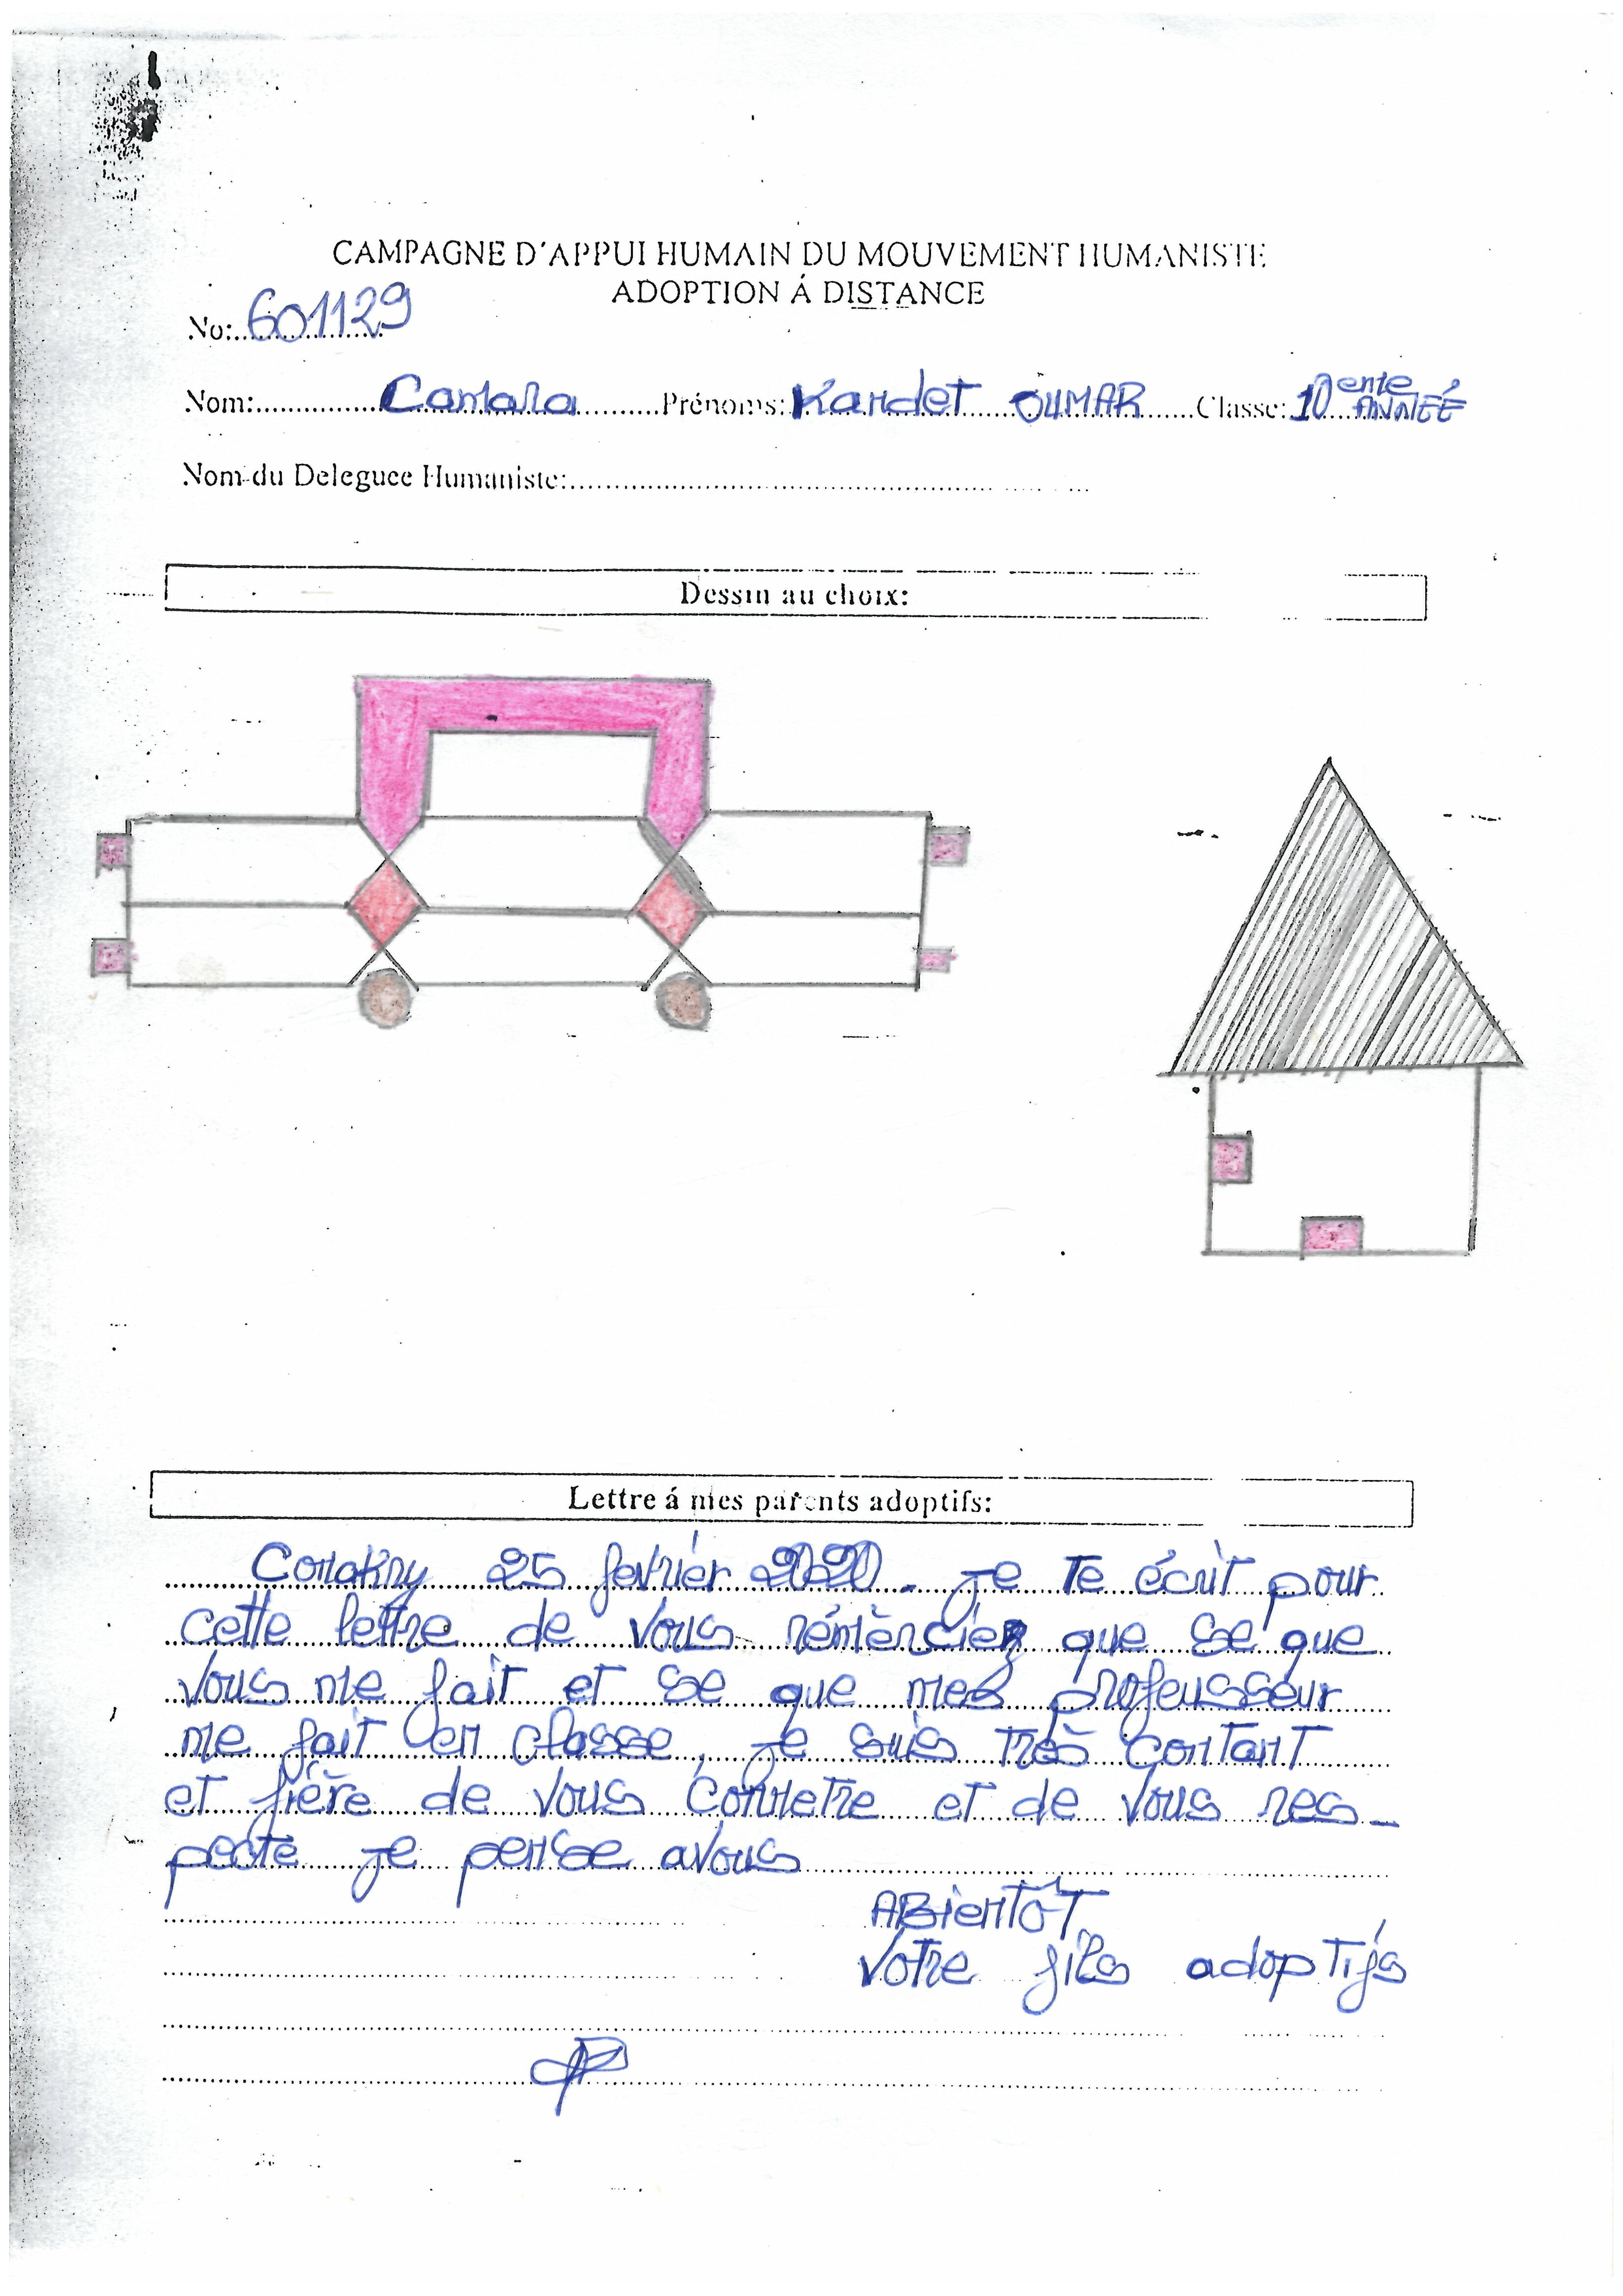 CAMPAGNE D'APPUI HUMAIN DU MOUVEMENT HUMANISTE
ADOPTION Á DISTANCE
No: 601129
Nom: Camara Prénoms: Kandet OUMAR Classe: 10 eme ANNEÉ
Nom du Deleguee Humaniste:
Dessin au choix:
Lettre á mes parents adoptifs:
Conakry 25 fevrier 2020. je te écrit pour
cette lettre de vous rémèrcier que se que
vous me fait et se que mes profeusseur
me fait en classe, je suis très contant
et fière de vous connetre et de vous res-
pecte je pense avous
ABientôt
Votre fils adoptifs